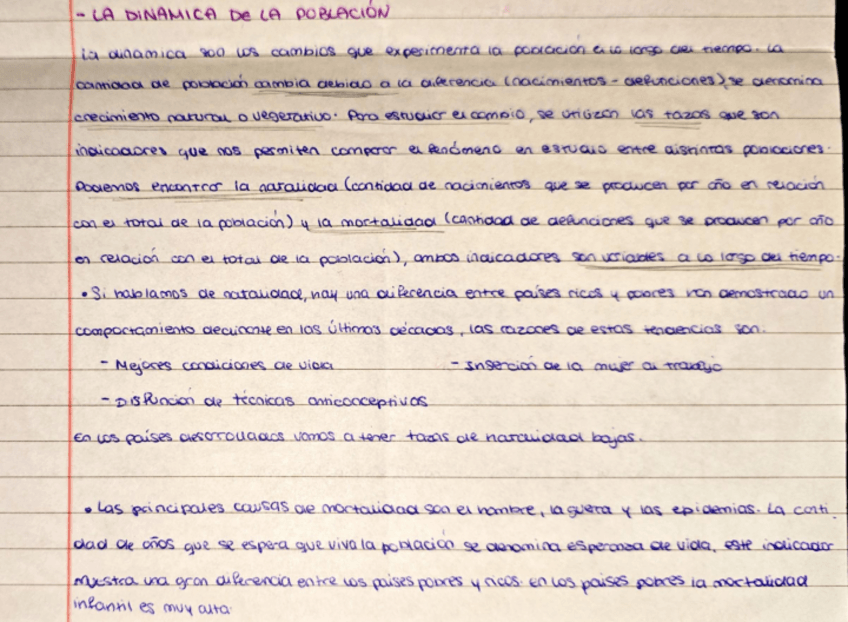 - LA DINAMICA DE LA POBLACIÓN
La dinamica son los cambios que experimenta la población a lo largo del tiempo. La
cantidad de población cambia debido a la diferencia (nacimientos - defunciones), se denomina
crecimiento natural o vegetativo. Para estudiar el cambio, se utilizan las tazas que son
indicadores que nos permiten comparar el fenómeno en estudio entre distintas poblaciones.
Podemos encontrar la natalidad (cantidad de nacimientos que se producen por año en relación
con el total de la población) y la mortalidad (cantidad de defunciones que se producen por año
en relación con el total de la población), ambos indicadores son variables a lo largo del tiempo.
• Si hablamos de natalidad, hay una diferencia entre países ricos y pobres han demostrado un
comportamiento declinante en las últimas décadas, las razones de estas tendencias son:
- Mejores condiciones de vida - Inserción de la mujer al trabajo
- Disfunción de técnicas anticonceptivas
En los países desarrollados vamos a tener tazas de natalidad bajas.
• Las principales causas de mortalidad son el hambre, la guerra y las epidemias. La canti
dad de años que se espera que viva la población se denomina esperanza de vida, este indicador
muestra una gran diferencia entre los países pobres y ricos. En los países pobres la mortalidad
infantil es muy alta.